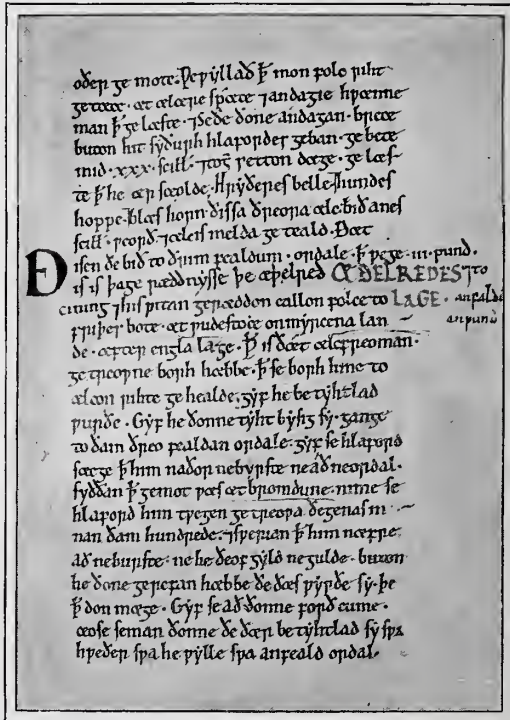 oðer ge mote. Ƿe ƿyllað ꝥ mon folc riht
ge tæce · æt ælcere spæce ⁊ andagie hƿænne
man ꝥ ge læste · ⁊ se ðe ðone andagan · brece
buton hit sy ðurh hlafordes geban · ge bete
mid · xxx · scill · ⁊ to setton dæge · ge læs-
te ꝥ he ær sceolde. Hryðeres belle · hundes
hoppe · blæs horn · ðissa ðreora ælc · bið anes
scill · ƿeorð · ⁊ ælc is melda ge teald. Ðæt
isen ðe bið to ðrim fealdum · ordale · ꝥ ƿege · iii · pund · ⁊ to
anfaldan
an pund
Ðis is þa ge ræddnysse þe æþelred ÆÐELREDES
cining ⁊ his ƿitan geræddon eallon folce to LAGE ·
friþer bote · æt ƿudestoce on myrcena lan
de · æfter engla lage · ꝥ is ðæt ælc freoman ·
ge treoƿne borh hæbbe · ꝥ se borh hine to
ælcon rihte ge healde · gyf he be tyhtlad
ƿurðe · Gyf he ðonne tyht bysig sy · gange
to ðam ðreo fealdan ordale · gyf se hlaford
sæcge ꝥ him naðor ne byrste ne að ne ordal ·
syððan ꝥ gemot ƿæs æt bromdune · nime se
hlaford him tƿegen ge treoƿa ðegenas in
nan ðam hundrede · ⁊ sƿerian ꝥ him næfre
að ne burste · ne he ðeof gyld ne gulde · buton
he ðone gerefan hæbbe ðe ðæs ƿyrðe sy · þe
ꝥ don mæge · Gyf se að ðonne forð cume ·
ceose se man ðonne ðe ðær be tyhtlad sy sƿa
hƿeðer sƿa he ƿylle sƿa anfeald ordal ·